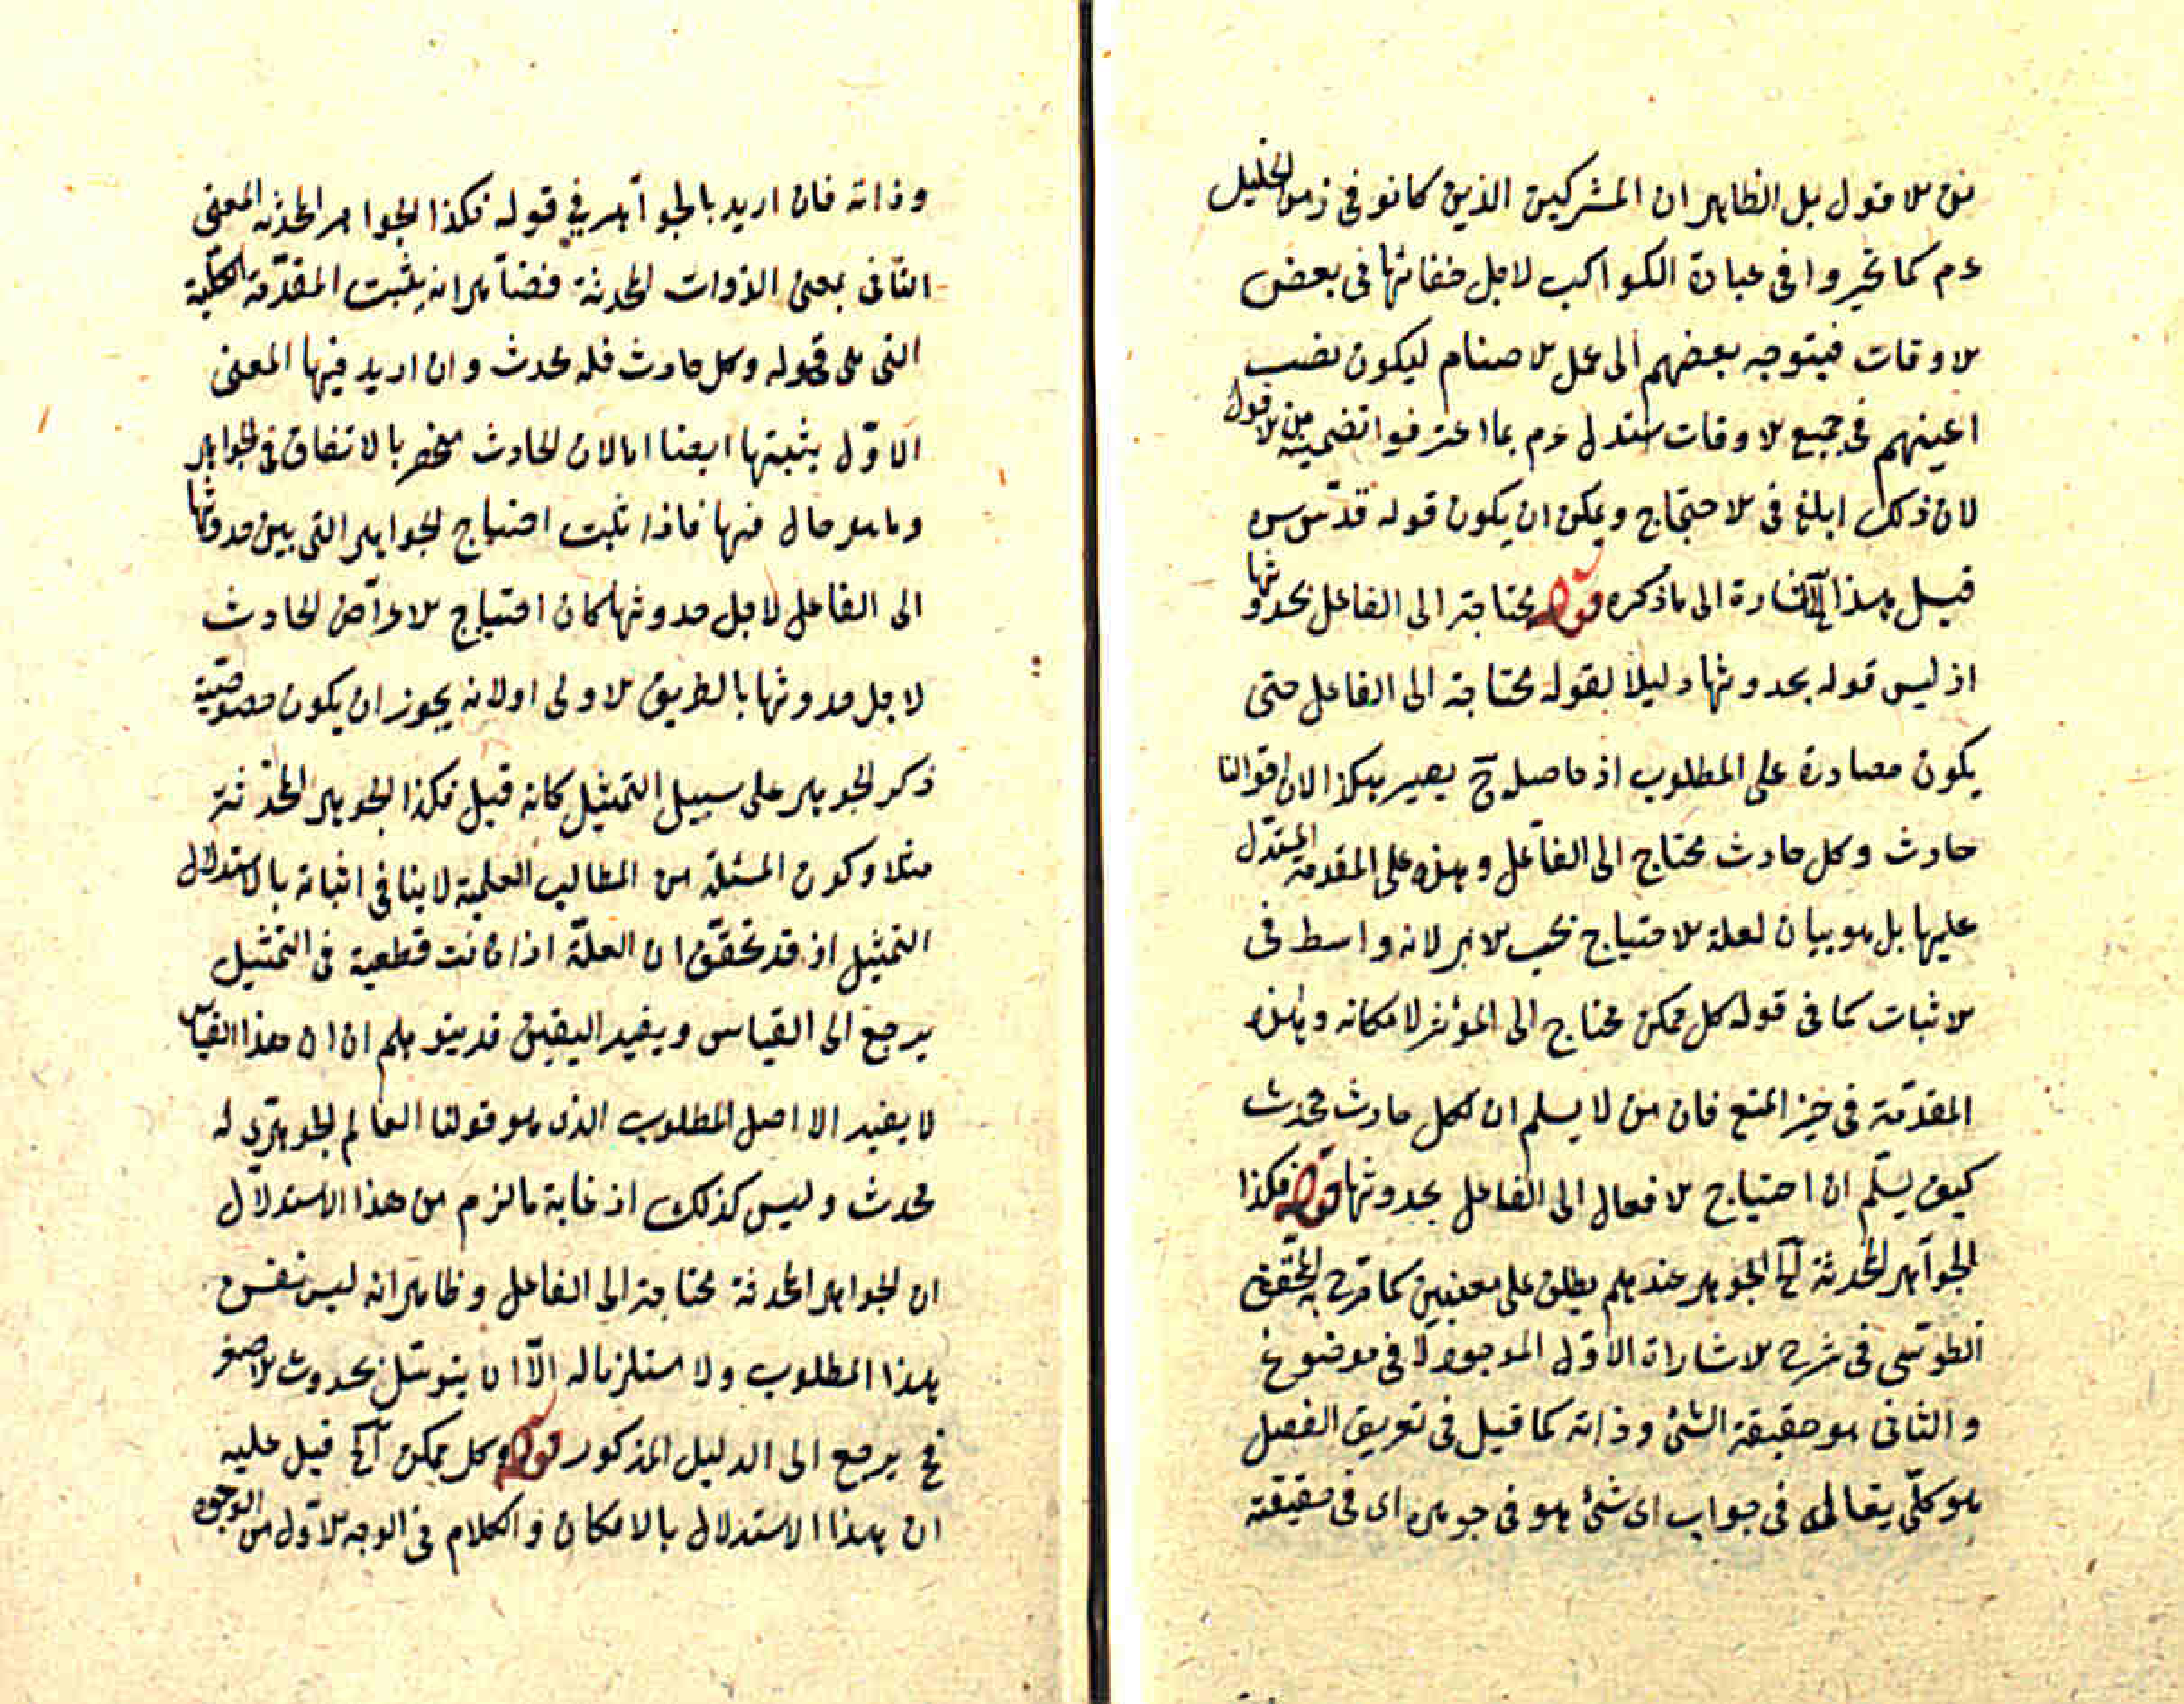 من الافول بل الظاهر ان المشركين الذين كانو فى زمن الخليل
عم كما تحيروا فى عبادة الكواكب لاجل خفائها فى بعض
الاوقات فيتوجه بعضهم الى عمل الاصنام ليكون نصب
اعينهم فى جميع الاوقات استدل عم بما اعترفوا تضمينه من الافول
لان ذلك ابلغ فى الاحتجاج ويمكن ان يكون قوله قدس سره
قيل هذا الخ اشارة الى ما ذكره قوله محتاجة الى الفاعل بحدوثها
اذ ليس قوله بحدوثها دليلا لقوله محتاجة الى الفاعل حتى
يكون مصادرة على المطلوب اذ حاصله ح يصير هكذا لان افوالنا
حادث وكل حادث محتاج الى الفاعل وهذه على المقدمة المستدل
عليها بل هو بيان لعلة الاحتياج بحسب الامر لانه واسط فى
الاثبات كما فى قوله كل ممكن محتاج الى المؤثر لامكانه وهذه
المقدمة فى حيز المنع فان من لا يسلم ان لكل حادث محدث
كيف يسلم ان احتياج الافعال الى الفاعل بحدوثها قوله فكذا
الجواهر المحدثة الخ الجوهر عندهم يطلق على معنيين كما صرح به المحقق
الطوسى فى شرح الاشارات الاول الموجود لا فى موضوع
والثانى هو حقيقة الشئ وذاته كما قيل فى تعريف الفصل
هو كلى يقال فى جواب اى شئ هو فى جوهره اى فى حقيقته
وذاته فان اريد بالجواهر في قوله فكذا الجواهر المحدثه المعنى
الثانى بمعنى الذوات المحدثة فضاهر انه يثبت المقدمة الكلية
التى هى قوله وكل حادث فله محدث وان اريد فيها المعنى
الاول يثبتها ايضا اما لان الحادث منحصر بالاتفاق فى الجواهر
وما هو حال فيها فاذا ثبت احتياج الجواهر التى بين حدوثها
الى الفاعل لاجل حدوثها كان احتياج الاعراض الحادث
لاجل حدوثها بالطريق الاولى اولانه يجوز ان يكون خصوصية
ذكر الجوهر على سبيل التمثيل كانه قيل فكذا الجوهر المحدثة
مثلا وكون المسئلة من المطالب العلمية لا ينافى اثباته بالاستدلال
التمثيل اذ قد تحقق ان العلة اذا كانت قطعية فى التمثيل
يرجع الى القياس ويفيد اليقين قد يتوهلم ان ان هذا القياس
لا يفيد الا اصل المطلوب الذى هو قولنا العالم الجوهرى له
محدث وليس كذلك اذ غاية ما لزم من هذا الاستدلال
ان الجواهر المحدثة محتاجة الى الفاعل وظاهر انه ليس نفس
هذا المطلوب ولا استلزما له الا ان يتوسل بحدوث الاصغر
فح يرجع الى الدليل المذكور قوله وكل ممكن الخ قيل عليه
ان هذا الاستدلال بالامكان والكلام فى الوجه الاول من الوجوه